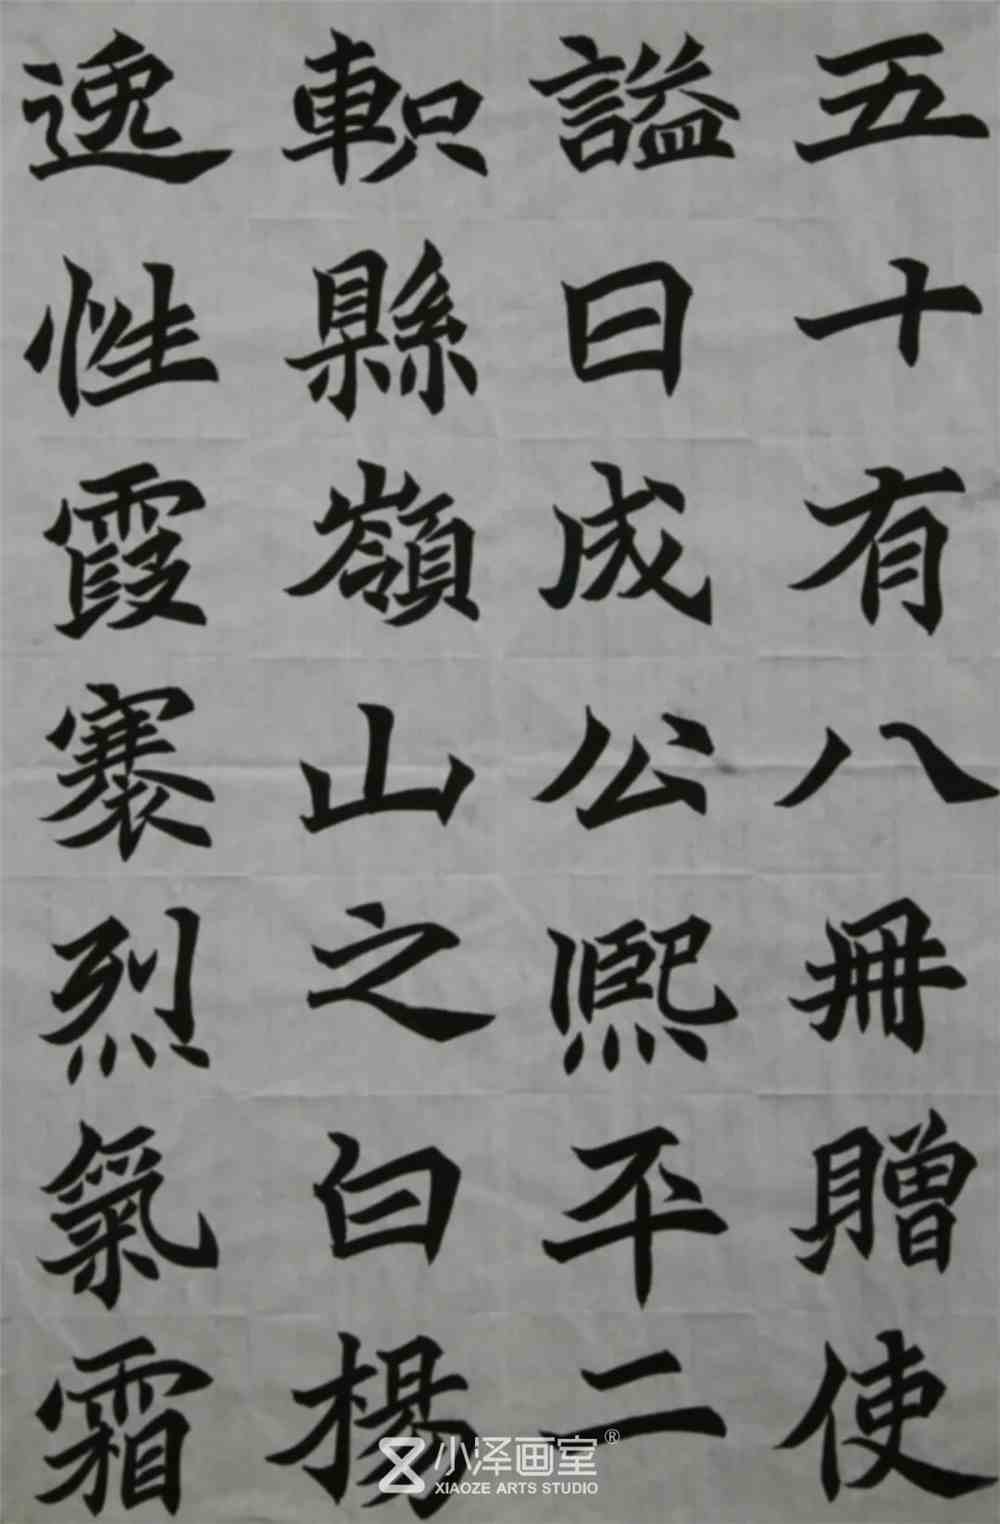 五十有八冊贈使
謚曰成公熙平二
軹縣嶺山之白楊
逸性霞褰烈氣霜
小泽画室®
XIAOZE ARTS STUDIO